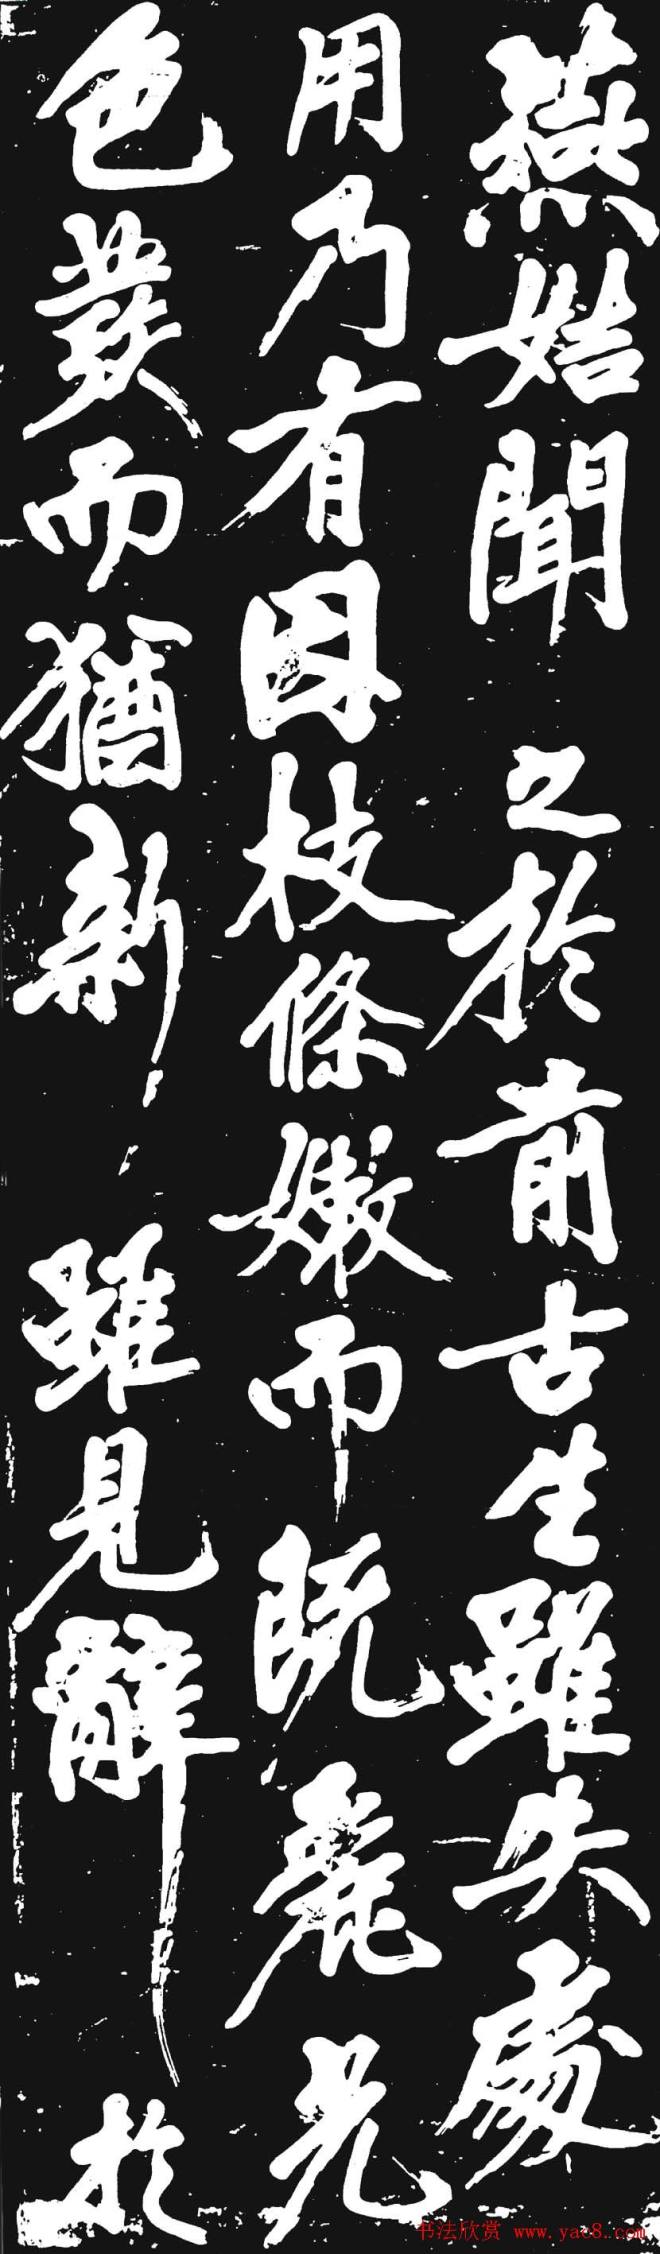 燕始聞之於前古生雖失處
用乃有因枝條嫩而既麗光
色發而猶新雖見辭於
书法欣赏 www.yac8.com